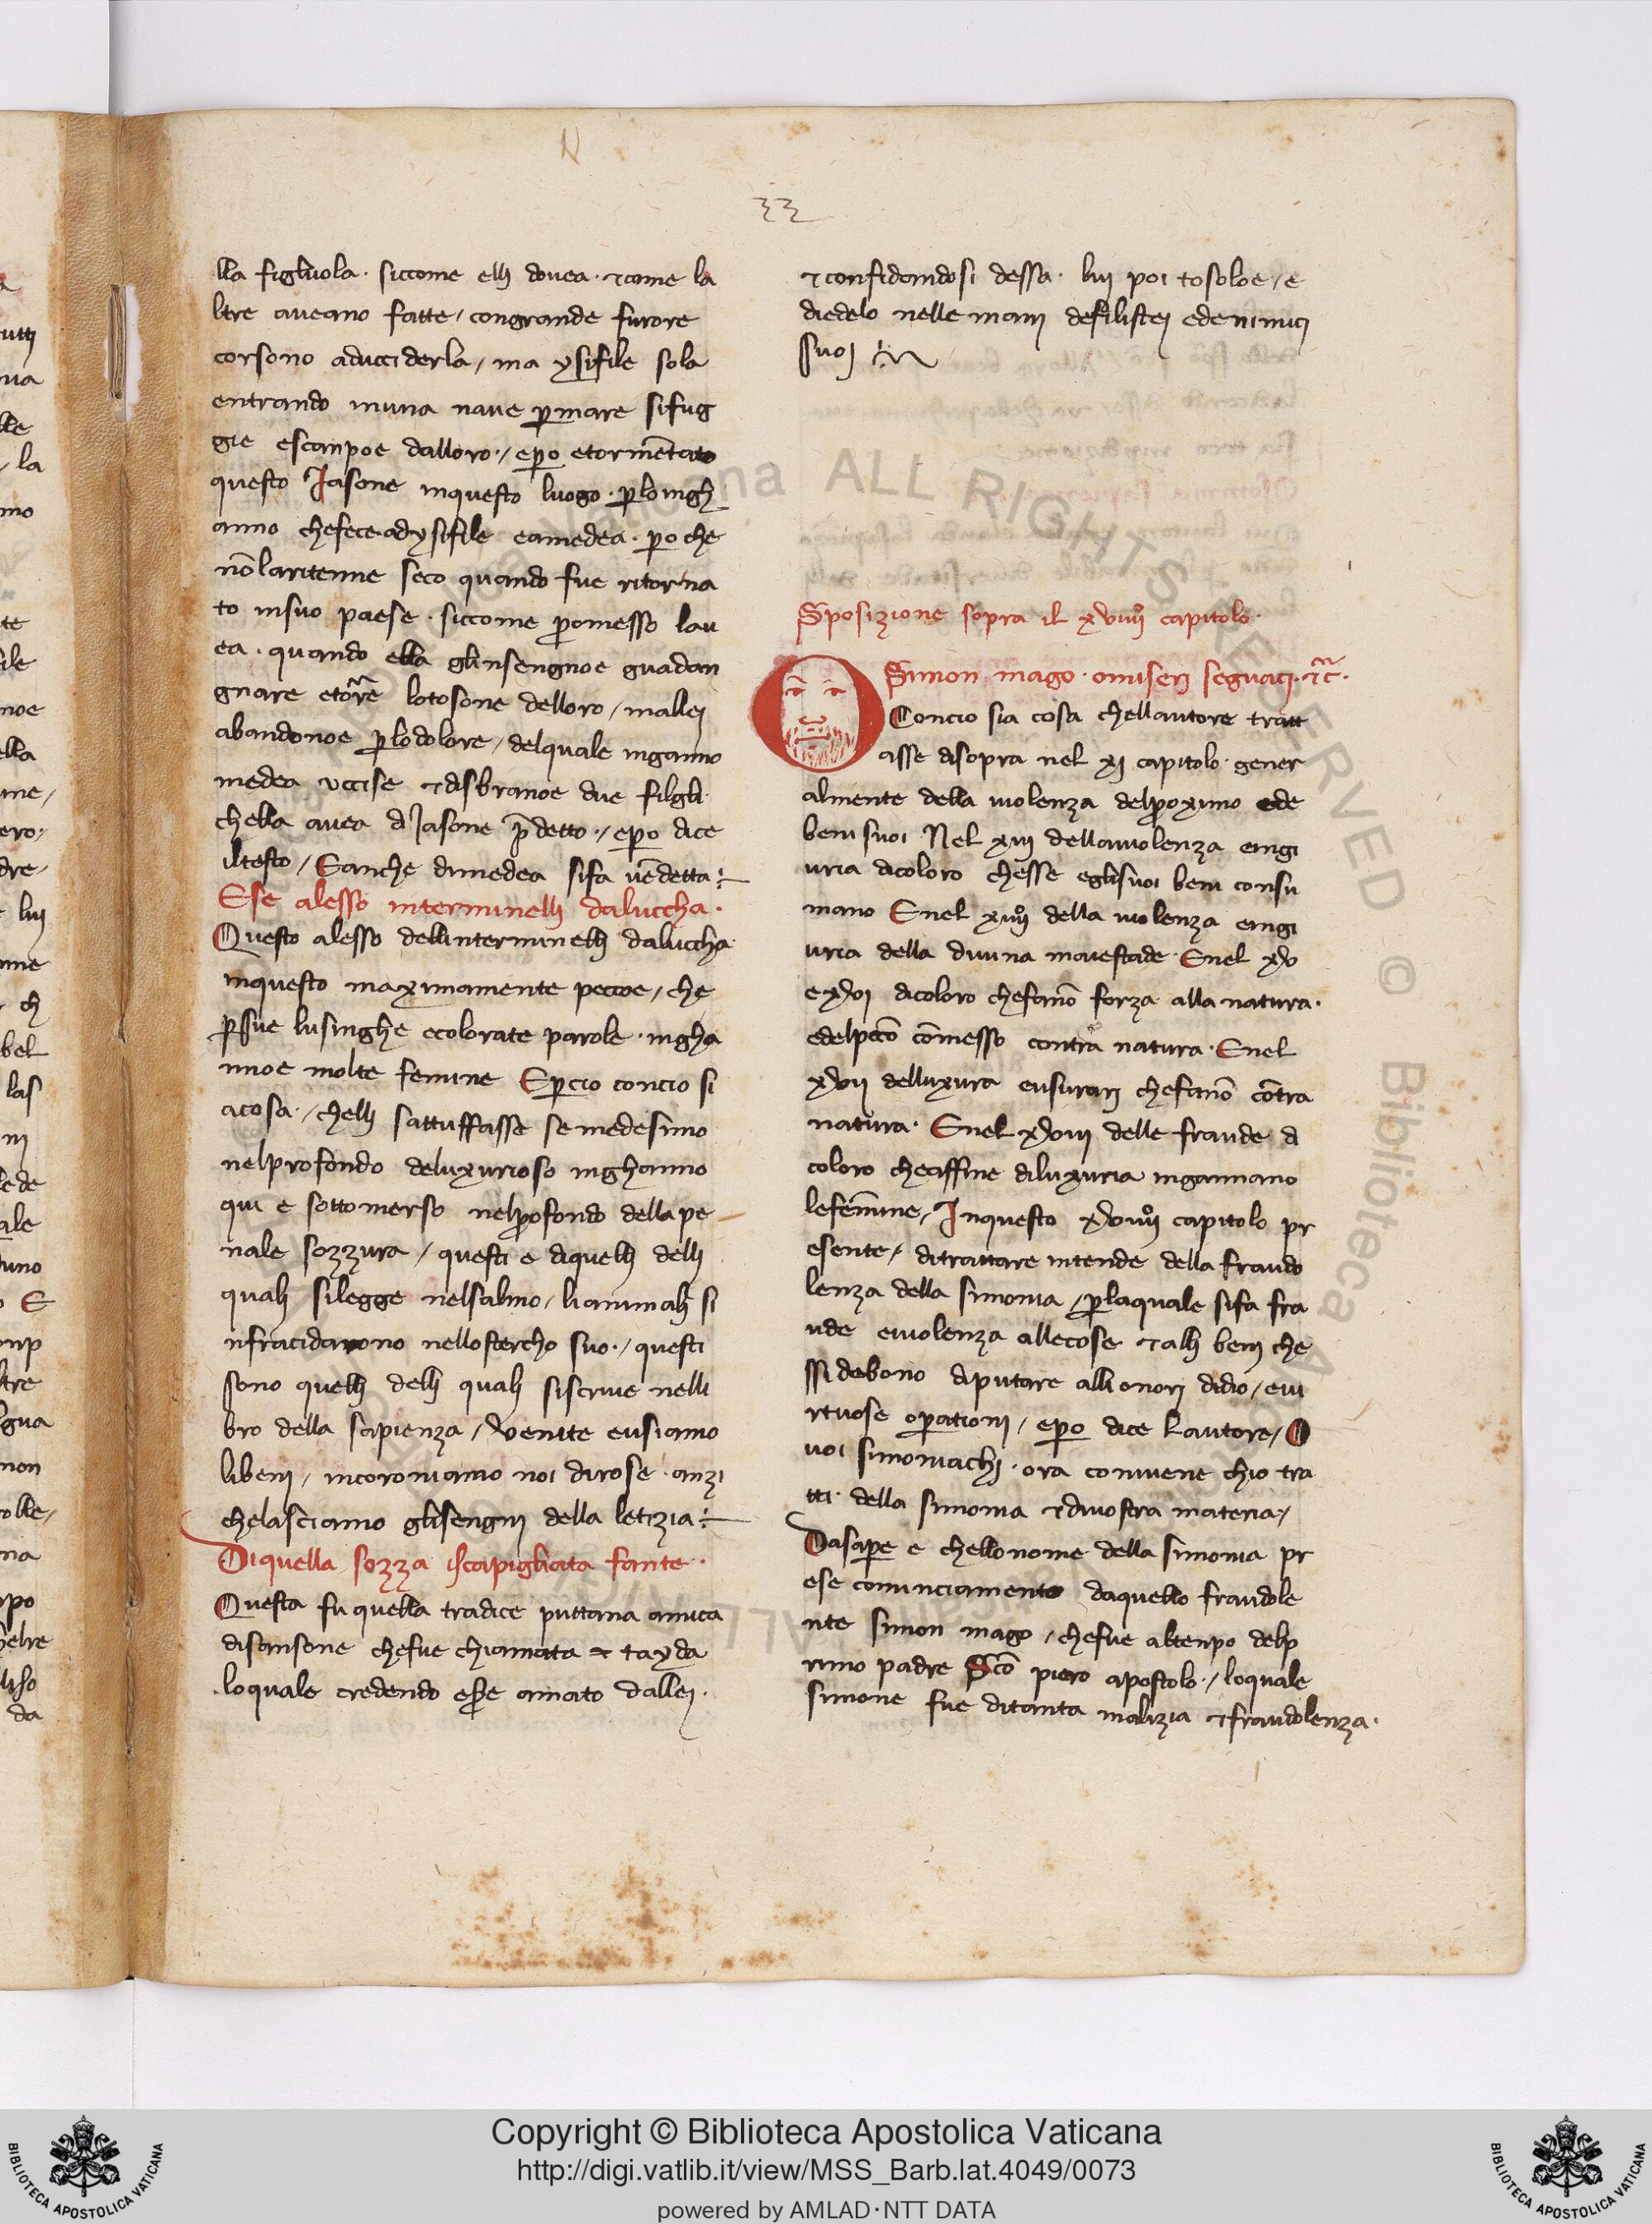 33
lla figliuola. siccome elli douea. et come la
ltre aueano fatte / congrande furore
corsono aducciderla / ma ysifile sola
entrando inuna naue p̱mare sifug
gie escanpoe dalloro. / ep̱o etormētato
questo Iasone inquesto luogo. p̱loingh
anno chefece adysifile eamedea. p̱o che
nōlaritenne seco quando fue ritorna
to insuo paese. siccome ꝓmesso lau
ea. quando ella glinsengnoe guadan
gnare etor̄re lotosone delloro / mallei
abandonoe p̱lodolore / delquale inganno
medea uccise et disbranoe due filgli
chella auea di Iasone p̄detto. / ep̱o dice
iltesto / Eanche dimedea sifa uēdetta
Ese alesso interminelli daluccha.
Questo alesso dellinterminelli daluccha
inquesto maximamente peccoe / che
p̱sue lusinghe ecolorate parole. ingha
nnoe molte femine Ep̱cio concio si
acosa. / chelli sattuffasse semedesimo
nelprofondo deluxurioso inghanno
qui e sottomerso nelꝓfondo dellape
nale sozzura / questi e diquelli delli
quali silegge nelsalmo / lianimali si
nfracidarono nellostercho suo. / questi
sono quelli delli quali siscriue nelli
bro della sapienza / Venite eusiamo
libeni / incoroniamo noi dirose. anzi
chelasciamo glisengni della letizia
Diquella sozza iscapigliata fante.
Questa fu quella tradice puttana amica
disansone chefue chiamata et tayda
loquale credendo es̱e amato dallei.
et confidandosi dessa. lui poi tosoloe / e
diedelo nelle mani defilistei edenimici
suoi
Sposizione sopra il xviiiiº capitolo.
O Simon mago. omiseri seguaci. etc̄.
Concio sia cosa chellautore tratt
asse disopra nel xi capitolo. gener
almente della uiolenza delꝓximo ede
beni suoi Nel xiii dellauiolenza eingi
uria dicoloro chesse eglisuoi beni consu
mano Enel xiiiiº della uiolenza eingi
uria della diuina maiestade. Enel xv
exvi dicoloro chefanō forza alla natura.
edelpeccō cōmesso contra natura. Enel
xvii delluxura eusurari chefanō cōtra
natura. Enel xviii delle fraude di
coloro cheaffine diluxuria ingannano
lefemmine / Inquesto xviiiiº capitolo pr
esente / ditrattare intende della fraudo
lenza della simonia / p̱laquale sifa fra
ude euiolenza allecose et alli beni che
ssidebono diputare alli onori didio / eui
rtuose op̱ationi / ep̱o dice lautore / O
uoi simoniachi. ora conuiene chio tra
tti. della simonia et diuostra materia /
Dasap̱e e chellonome della simonia pr
ese cominciamento daquello fraudole
nte simon mago / chefue altenpo delp
rimo padre Scō piero apostolo. / loquale
simone fue ditanta malizia et fraudolenza.
Copyright © Biblioteca Apostolica Vaticana
http://digi.vatlib.it/view/MSS_Barb.lat.4049/0073
powered by AMLAD·NTT DATA
BIBLIOTECA APOSTOLICA VATICANA
BIBLIOTECA APOSTOLICA VATICANA